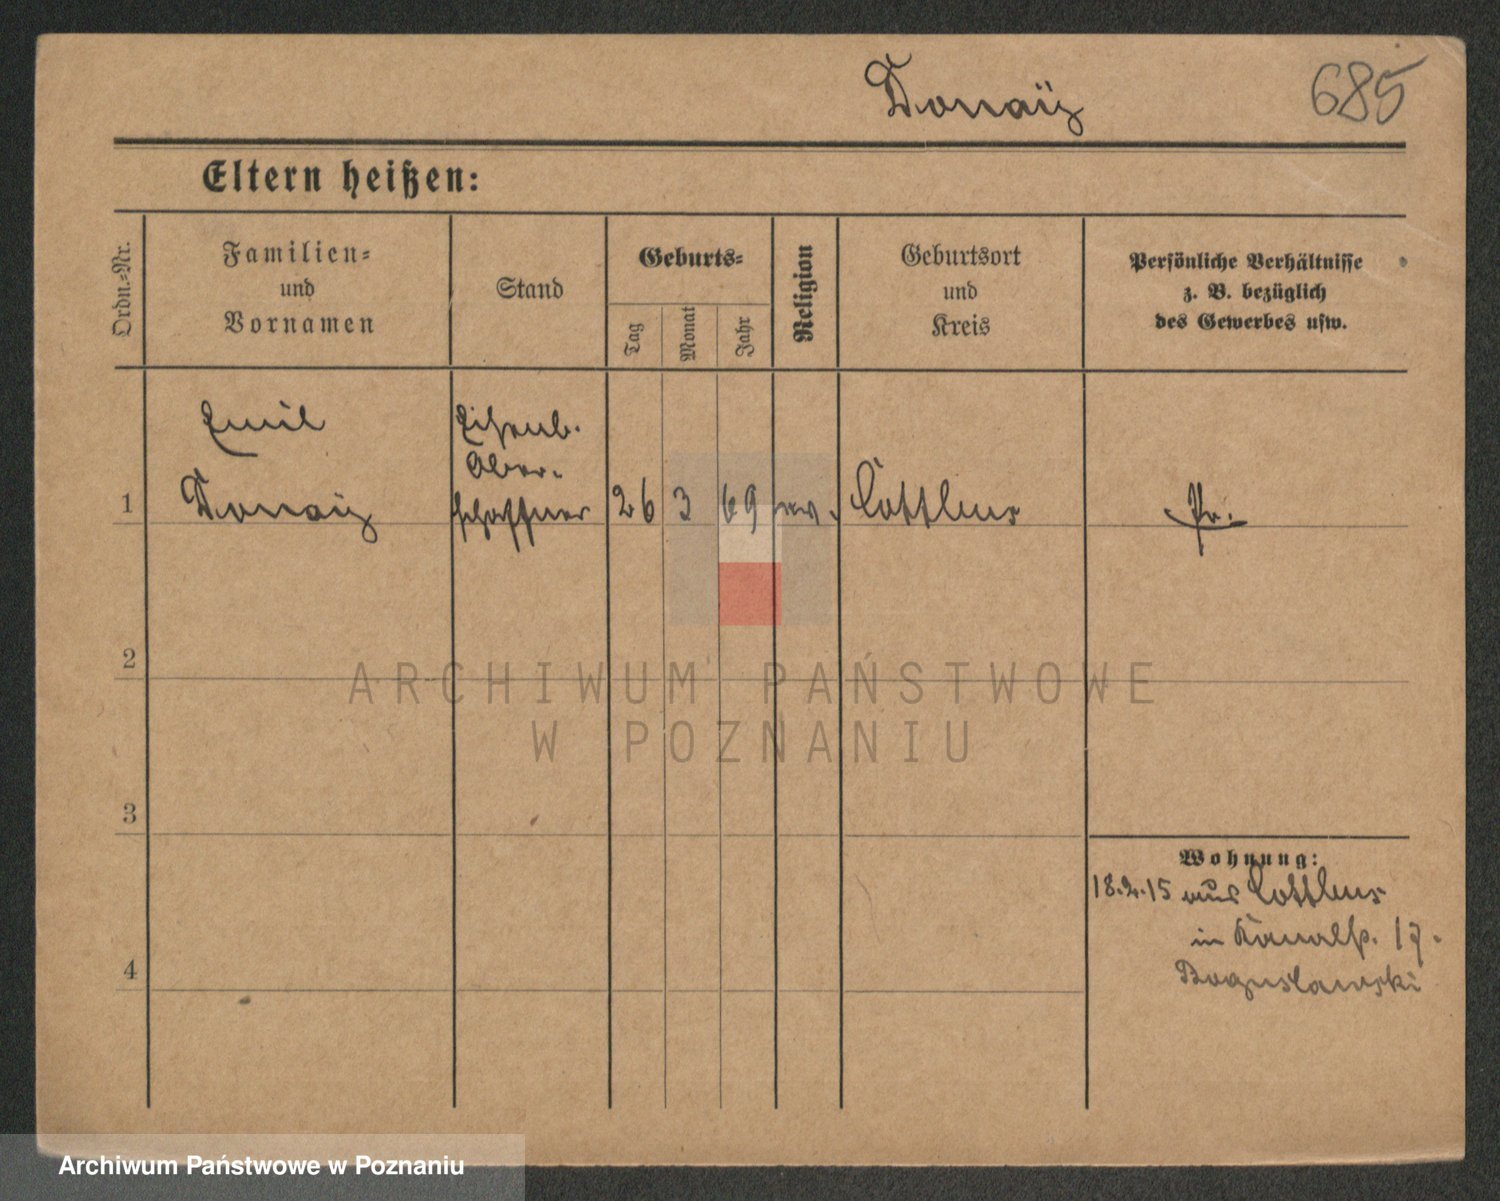 Donaÿ
685
Eltern heißen:
Ordn.-Nr.
Familien-
und
Vornamen
Stand
Geburts-
Tag
Monat
Jahr
Religion
Geburtsort
und
Kreis
Persönliche Verhältnisse
z. B. bezüglich
des Gewerbes usw.
Emil
Eisenb.
Ober-
1 Donaÿ schaffner 26 3 69 ev. Cottbus Pr.
2
3
4
Wohnung:
18.2.15 aus Cottbus
in Kanalst. 17.
Boguslawski
ARCHIWUM PAŃSTWOWE
W POZNANIU
Archiwum Państwowe w Poznaniu